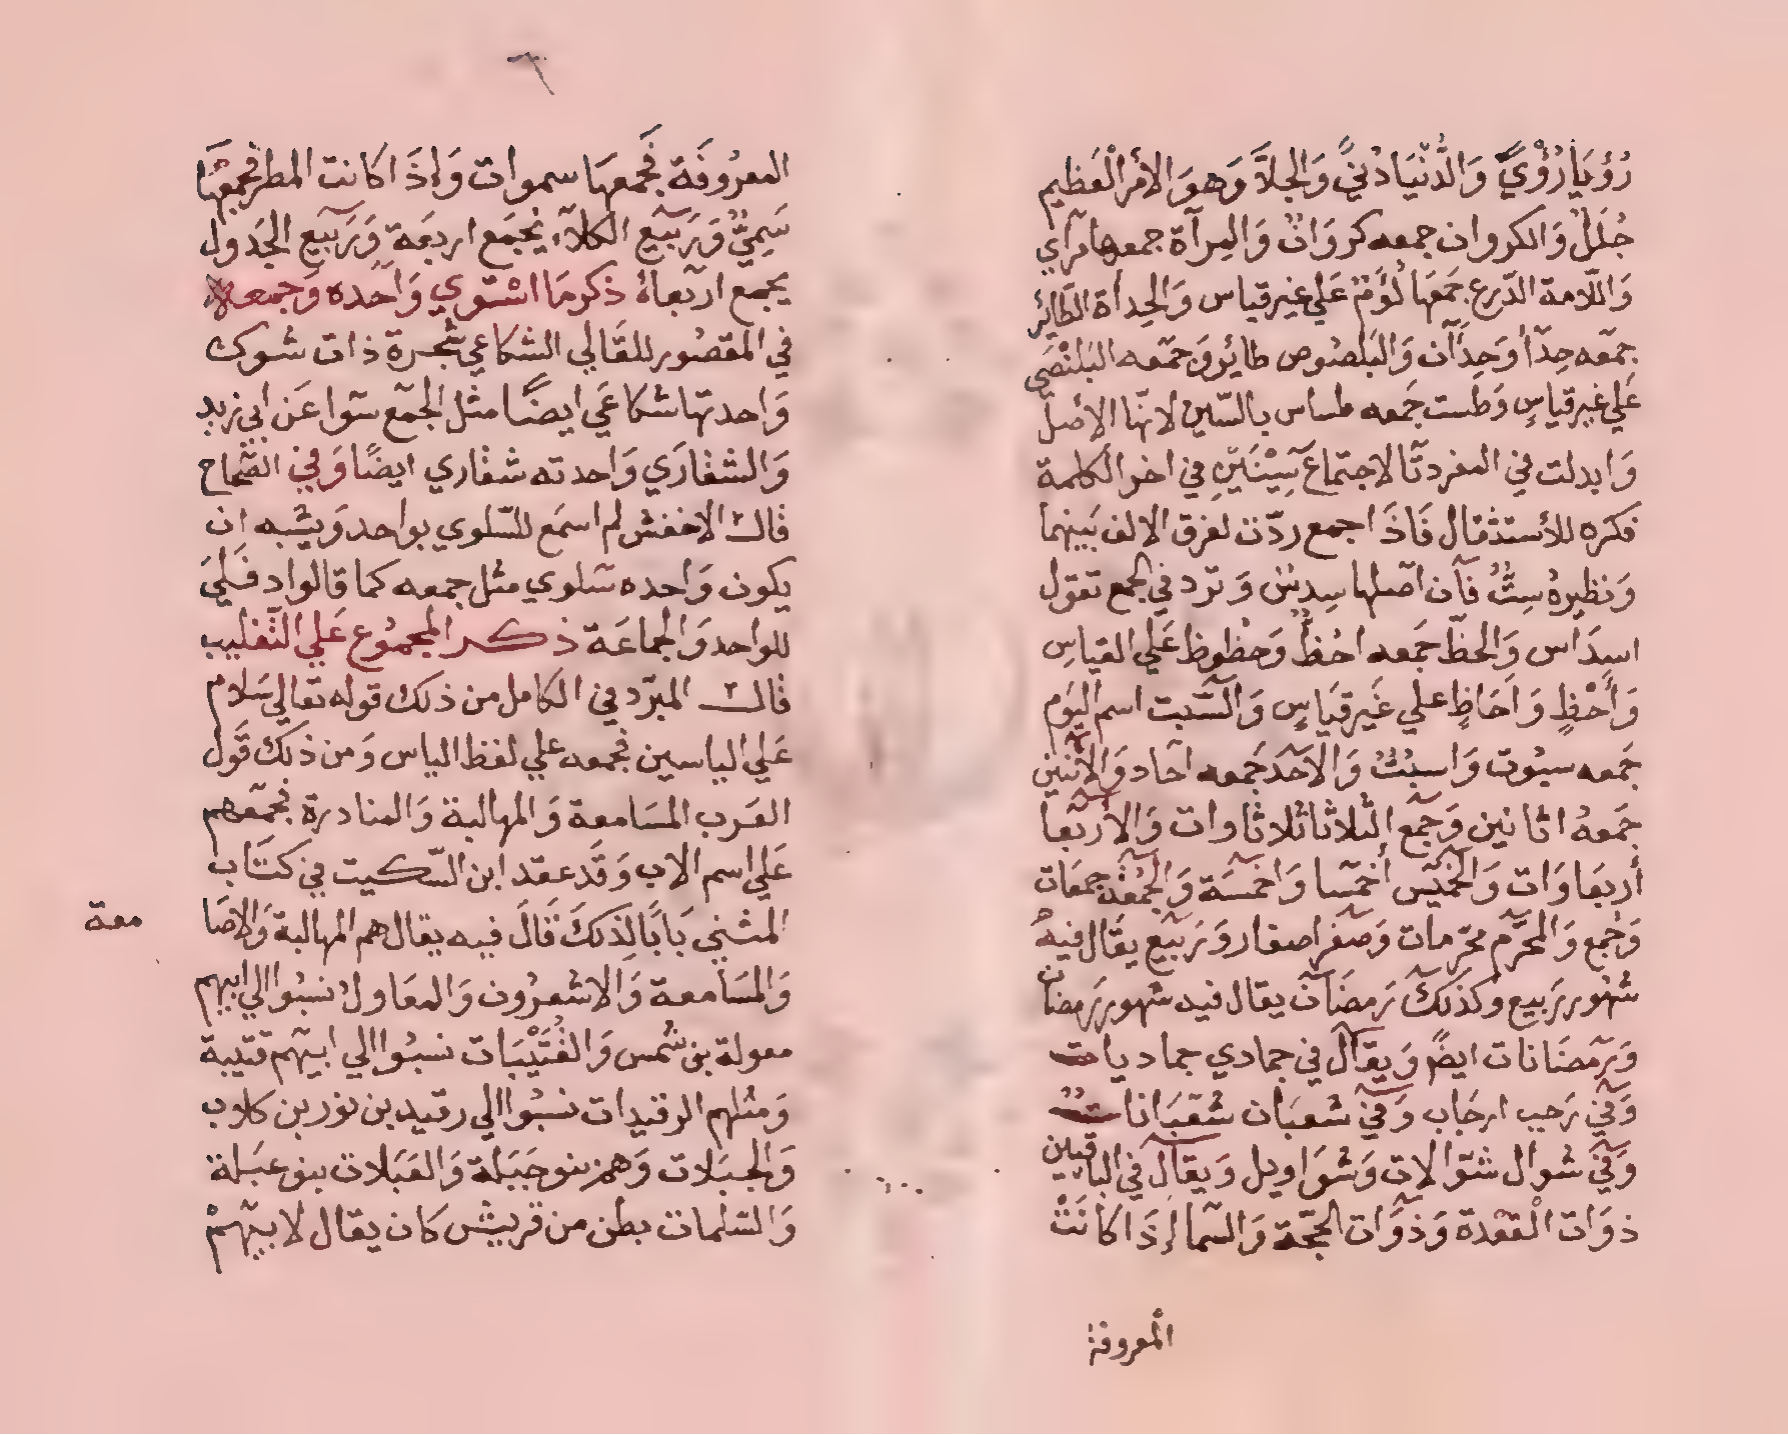 رُؤيَا رُؤْيً وَالدُّنْيَا دُنيً وَالجلَّا وَهوَ الأمْر الْعَظيم
جُلَلٌ وَالكروان جمعه كروَانٌ وَالمِرآة جمعها مرآي
وَاللّامة الدّرع جَمعَها لُؤَمٌ عَلي غير قياس وَالحِدأة الطّائِر
جمّعه حِدَأ وَحِدَآن وَالبَلصُوص طائِر وَجمّعه البَلَنْصَي
عَلي غير قياسٍ وَطست جَمعه طساس بالسّين لانهّا الاصْل
وَابدلت في المفرد تًا لاجتماع سِيْنَيَنِ في اخر الكلمة
فكره للأستثقال فَاذَا جمع ردّت لفرق الالف بَينهما
وَنظيرهُ سِتٌّ فآن اصْلها سِدسٌ وَترد في الجمع تقول
اسدَاس وَالحظّ جَمعه احُظٌّ وَحظوظ عَلي القياسِ
وَأحْظٍ وَاحَاظٍ علي غَير قيَاسٍ وَالسّبت اسم اليَوم
جَمعه سبُوت وَاسبُتٌ وَالاَحَد جَمعه احاد وَالاثنين
جمَعهُ اثانين وَجمَع الثلاثا ثلاثاوات وَالاربَعا
أربعَاوَات وَالخميس أخمسَا وَاخمسَة وَالجُمْعَة جمعَات
وَجُمع وَالمحَرَّم محرّمات وَصفر اصفار وَرَبيع يقَال فيهُ
شهُور رَبيع وَكذلكَ رَمضَان يقال فيه شهور رَمضان
وَرَمضَانات ايضً وَيقال في جمادي جماديات
وَفي رَجب ارجَاب وَفي شعبَان شعْبَانات
وَفي شوال شوّالات وَشوَاويل وَيقال في الباقيين
ذوَات الْقعْدة وَذوَات الحجّة وَالسّما إذَا كانَتْ
المعروفة
٦
المعرُوفَة فجَمعهَا سموات وَاذَا كانت المطر فجمعُهَا
سَمِيٌّ وَرَبيع الكلآء يجمَع اربعَة وَرَبيع الجَدول
يجمع اربَعاءُ ذكر مَا اسْتوي وَاحَده وَجمعه
في المقصُور للقَالي الشكاعي شجرة ذات شوك
وَاحدتهَا شكاعَي ايضًا مثل الجمّع سَوا عَن ابي زيد
وَالشقارَي وَاحدته شقاري ايضًا وَفي الصّحاح
قالَ الاخفش لم اسمَع للسّلوي بواحد وَيشبه ان
يكون وَاحده سَلوي مثل جمعه كما قالوا دفلَي
للواحد وَالجماعَة ذكر المجمُوع عَلي التَّغليب
قال المبرّد في الكامل من ذلك قوله تعَالي سَلام
عَلي الياسين فجمعه علي لفظ الياس وَمن ذلك قَول
العَرب المسَامعة وَالمهالبة وَالمنادرة فجمعَهم
عَلي اسم الاب وَقَد عقد ابن السّكيت في كتَاب
المثني بَابًا لِذلكَ قَالَ فيه يقال هم المهالبة وَالاصَا
معة
وَالمسَامعة وَالاشعرُون وَالمعَاول نسبُوا الي ابيهم
معولة بن شمس وَالقُتَيْبَات نسبُوا الي ابيهم قتيبة
وَمثلهم الرقيدات نسبُوا الي رقيد بن ثور بن كلاب
وَالجبَلات وَهم بنو جَبَلة وَالعَبَلات بنو عبَلة
وَالسّلمات بطن من قريش كان يقال لابيهمْ